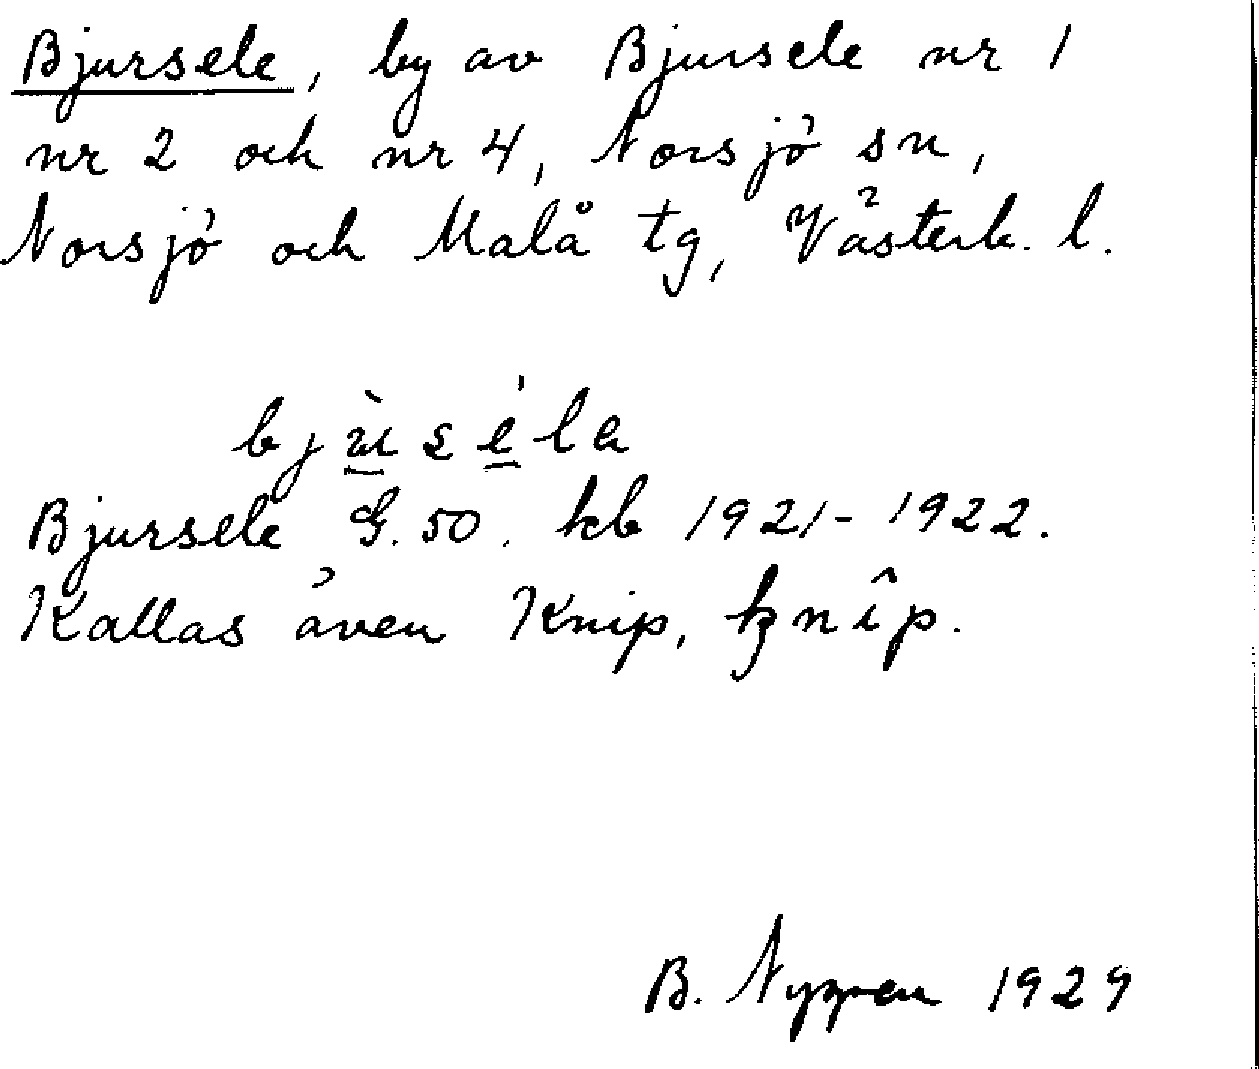 Bjursele, by av Bjursele nr 1
nr 2 och nr 4, Norsjö sn,
Norsjö och Malå tg, Västerb. l.
bjùséla
Bjursele G. 50. kb 1921-1922.
Kallas även Knip, knîp.
B. Nyppen 1929